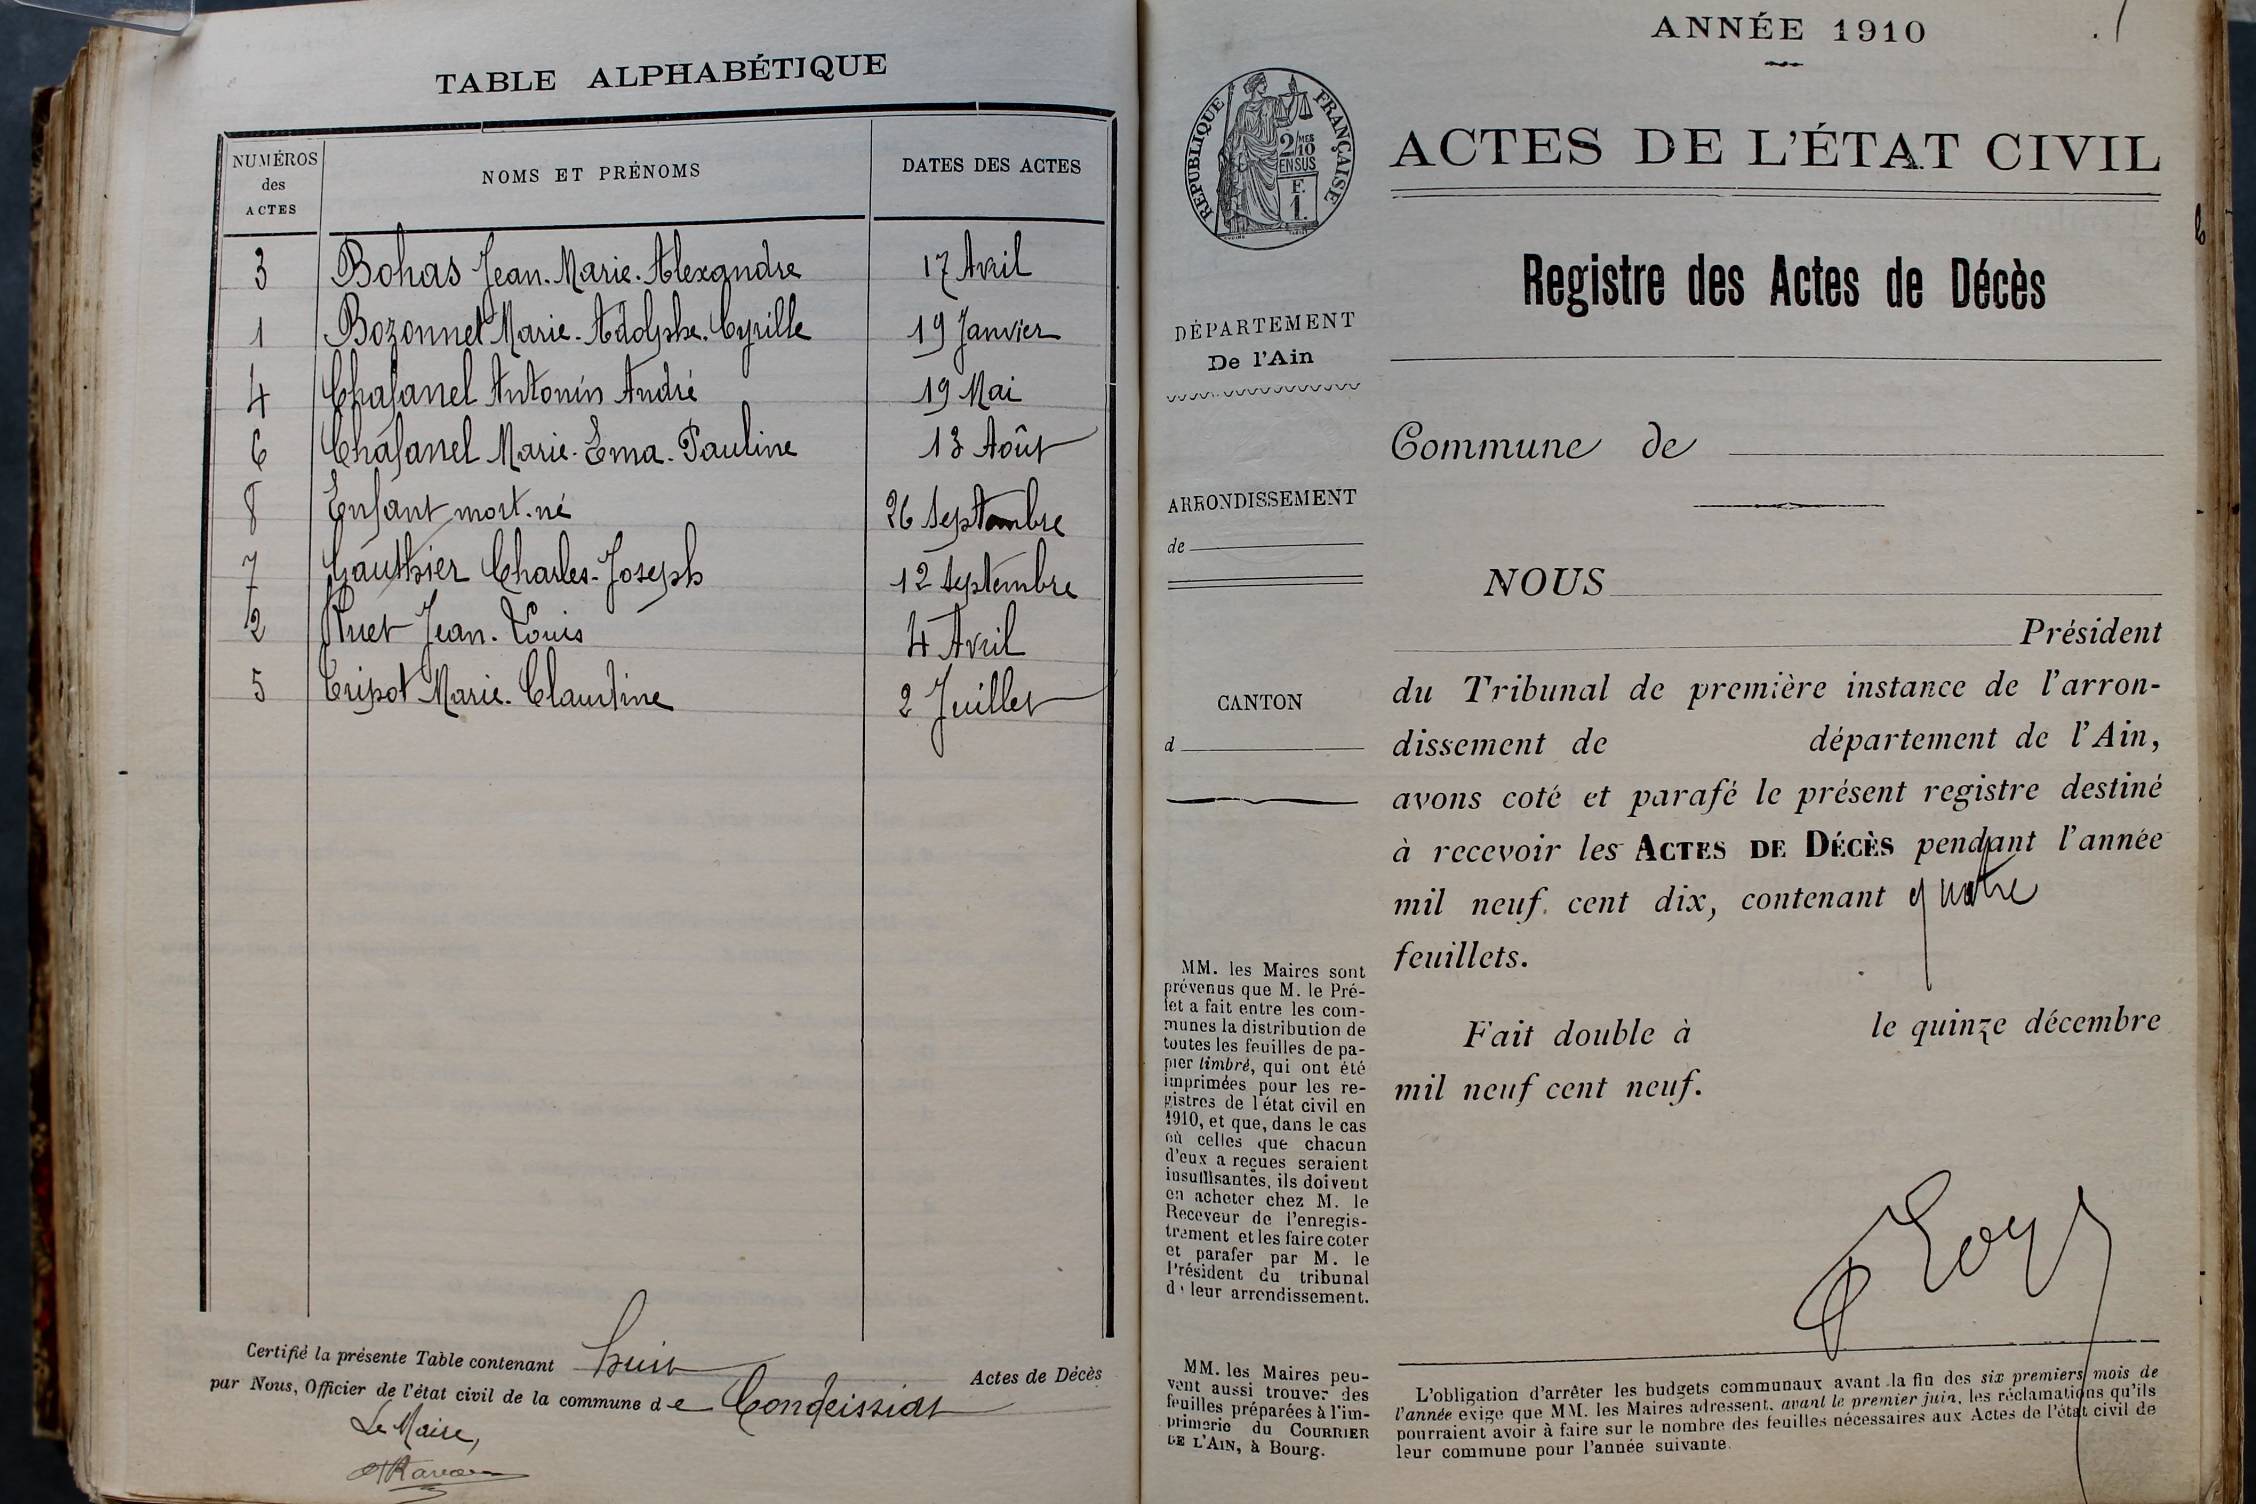 TABLE ALPHABÉTIQUE
NUMÉROS des ACTES
NOMS ET PRÉNOMS
DATES DES ACTES
3 Bohas Jean-Marie-Alexandre 17 Avril
1 Bozonnet Marie-Adolphe-Cyrille 19 Janvier
4 Chafanel Antonin André 19 Mai
6 Chafanel Marie-Ema-Pauline 13 Août
8 Enfant mort-né 26 Septembre
7 Gauthier Charles-Joseph 12 Septembre
2 Ruet Jean-Louis 4 Avril
5 Tripot Marie-Claudine 2 Juillet
Certifié la présente Table contenant huit Actes de Décès
par Nous, Officier de l'état civil de la commune de Condeissiat
Le Maire,
ANNÉE 1910
RÉPUBLIQUE FRANÇAISE
2/10 MES
EN SUS
F.
1.
ACTES DE L'ÉTAT CIVIL
Registre des Actes de Décès
DÉPARTEMENT
De l'Ain
Commune de
ARRONDISSEMENT
de
CANTON
d
NOUS
Président
du Tribunal de première instance de l'arron-
dissement de département de l'Ain,
avons coté et parafé le présent registre destiné
à recevoir les ACTES DE DÉCÈS pendant l'année
mil neuf cent dix, contenant quatre
feuillets.
Fait double à le quinze décembre
mil neuf cent neuf.
MM. les Maires sont
prévenus que M. le Pré-
fet a fait entre les com-
munes la distribution de
toutes les feuilles de pa-
pier timbré, qui ont été
imprimées pour les re-
gistres de l'état civil en
1910, et que, dans le cas
où celles que chacun
d'eux a reçues seraient
insuffisantes, ils doivent
en acheter chez M. le
Receveur de l'enregis-
trement et les faire coter
et parafer par M. le
Président du tribunal
de leur arrondissement.
MM. les Maires peu-
vent aussi trouver des
feuilles préparées à l'im-
primerie du COURRIER
DE L'AIN, à Bourg.
L'obligation d'arrêter les budgets communaux avant la fin des six premiers mois de
l'année exige que MM. les Maires adressent, avant le premier juin, les réclamations qu'ils
pourraient avoir à faire sur le nombre des feuilles nécessaires aux Actes de l'état civil de
leur commune pour l'année suivante.